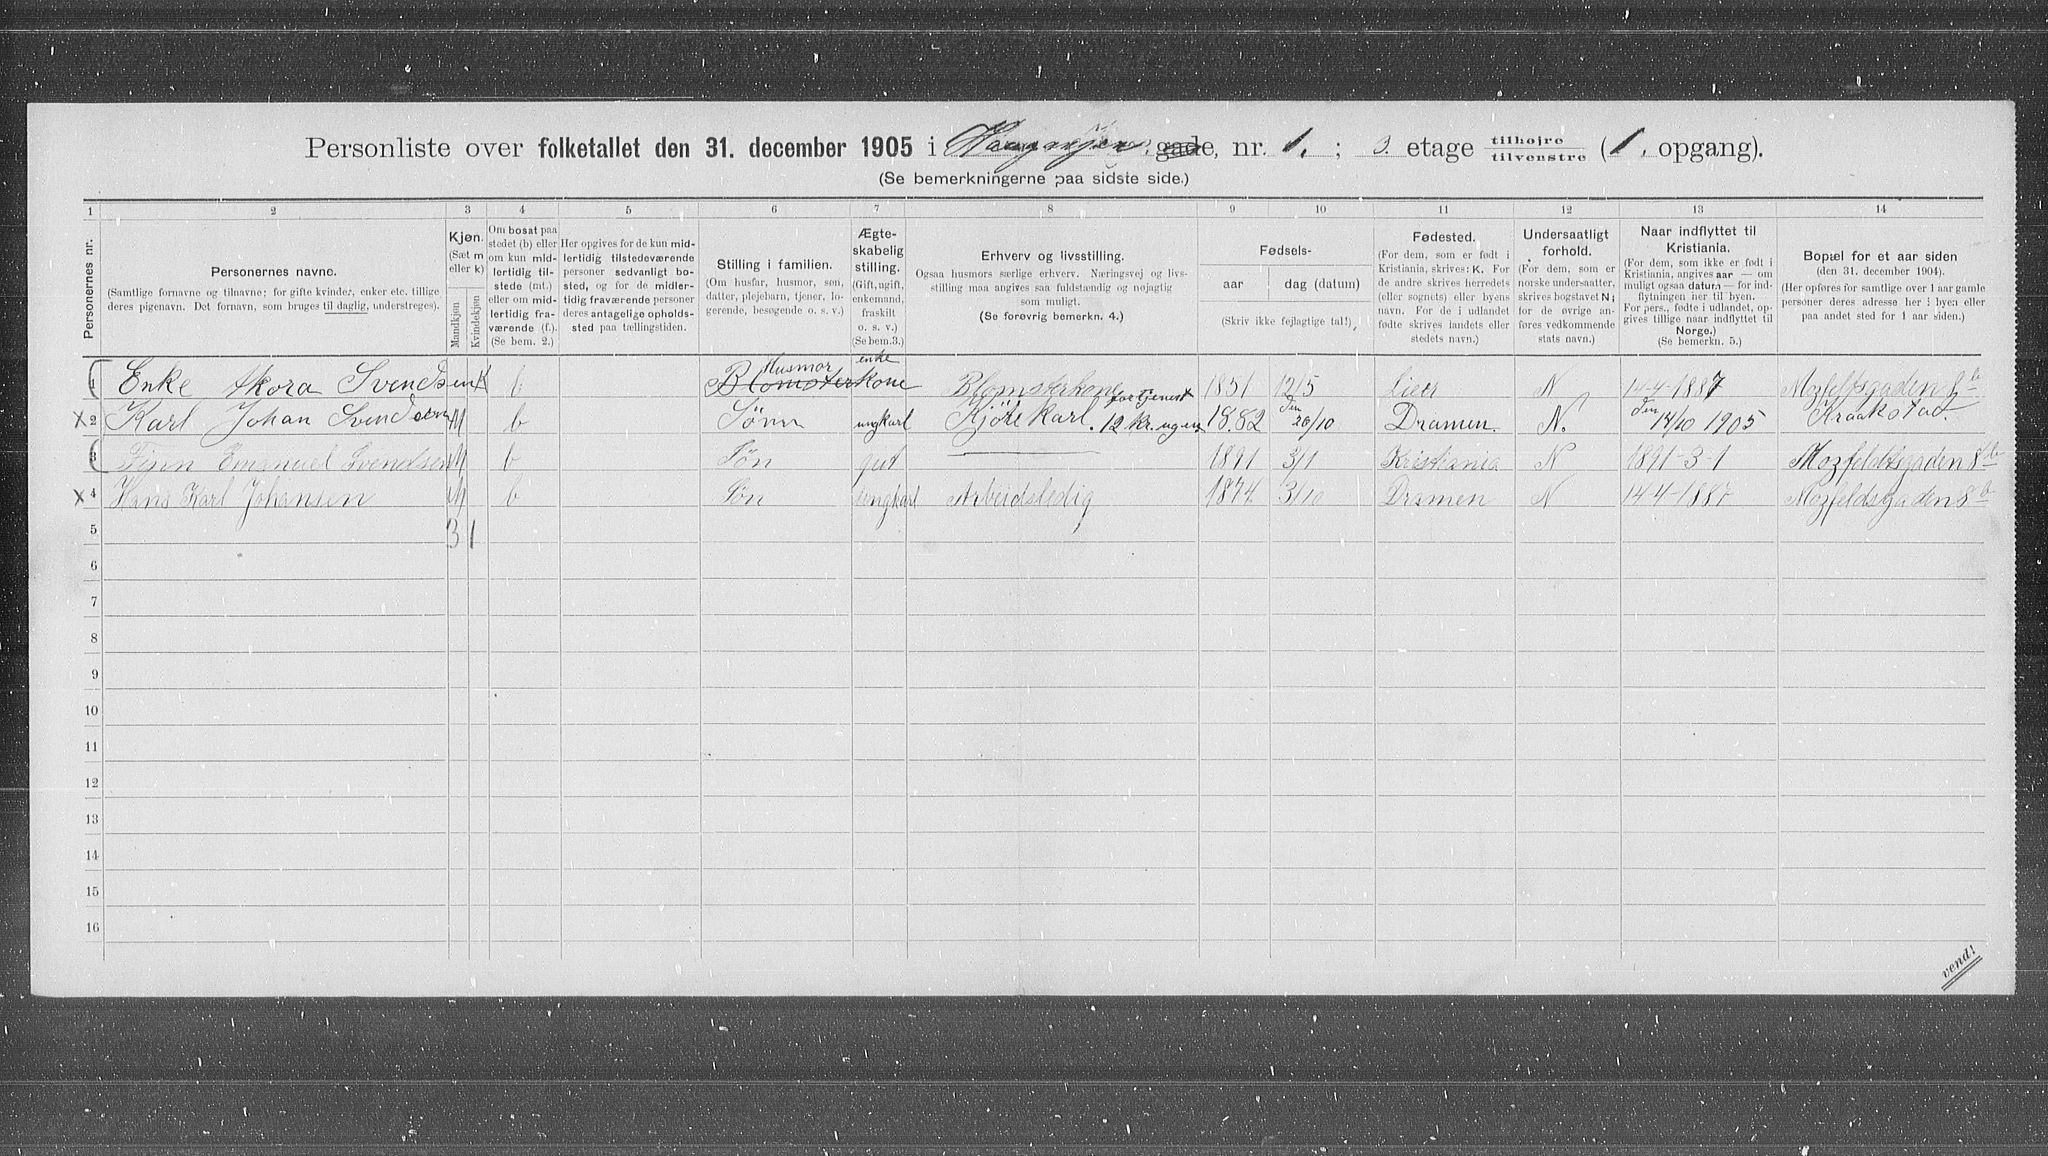 Personliste over folketallet den 31. december 1905 i Haugangen gade, nr. 1. ; 3. etage tilhøjre tilvenstre (1. opgang).
(Se bemerkningerne paa sidste side.)
1 2 3 4 5 6 7 8 9 10 11 12 13 14
Personernes nr.
Personernes navne.
(Samtlige fornavne og tilnavne; for gifte kvinder, enker etc. tillige
deres pigenavn. Det fornavn, som bruges til daglig, understreges).
Kjøn.
(Sæt m
eller k)
Mandkjøn
Kvindekjøn
Om bosat paa
stedet (b) eller
om kun mid-
lertidig til-
stede (mt.)
eller om mid-
lertidig fra-
værende (f.)
(Se bem. 2.)
Her opgives for de kun mid-
lertidig tilstedeværende
personer sedvanligt bo-
sted, og for de midler-
tidig fraværende personer
deres antagelige opholds-
sted paa tællingstiden.
Stilling i familien.
(Om husfar, husmor, søn,
datter, plejebarn, tjener, lo-
gerende, besøgende o. s. v.)
Ægte-
skabelig
stilling.
(Gift, ugift,
enkemand,
fraskilt
o. s. v.)
(Se bem.3.)
Erhverv og livsstilling.
Ogsaa husmors særlige erhverv. Næringsvej og livs-
stilling maa angives saa fuldstændig og nøjagtig
som muligt.
(Se forøvrig bemerkn. 4.)
Fødsels-
aar dag (datum)
(Skriv ikke fejlagtige tal!)
Fødested.
(For dem, som er født i
Kristiania, skrives: K. For
de andre skrives herredets
(eller sognets) eller byens
navn. For de i udlandet
fødte skrives landets eller
stedets navn.)
Undersaatligt
forhold.
(For dem, som er
norske undersaatter,
skrives bogstavet N;
for de øvrige an-
føres vedkommende
stats navn.)
Naar indflyttet til
Kristiania.
(For dem, som ikke er født i
Kristiania, angives aar — om
muligt ogsaa datum — for ind-
flytningen her til byen.
For pers., fødte i udlandet, op-
gives tillige naar indflyttet til
Norge.)
(Se bemerkn. 5.)
Bopæl for et aar siden
(den 31. december 1904).
(Her opføres for samtlige over 1 aar gamle
personer deres adresse her i byen eller
paa andet sted for 1 aar siden.)
1 Enke Thora Svendsen K b Husmor Blomsterkone enke Blomsterkone 1851 12/5 Lier N 14-4-1887 Mozfeltsgaden 8 b
x 2 Karl Johan Svendsen M b Sønn ungkarl Kjørekarl. fortjenest 12 kr. ugen 1882 den 20/10 Dramen. N. den 14/10 1905 Kraakstad
3 Finn Emanuel Svendsen M b Søn gut 1891 3/1 Kristiania N 1891-3-1 Mozfeldtsgaden 8 b
x 4 Hans Karl Johansen M b Søn ungkarl Arbeidsledig 1874 3/10 Dramen N 14-4-1887 Mozfeldsgaden 8 b
5 3 1
6
7
8
9
10
11
12
13
14
15
16
vend!